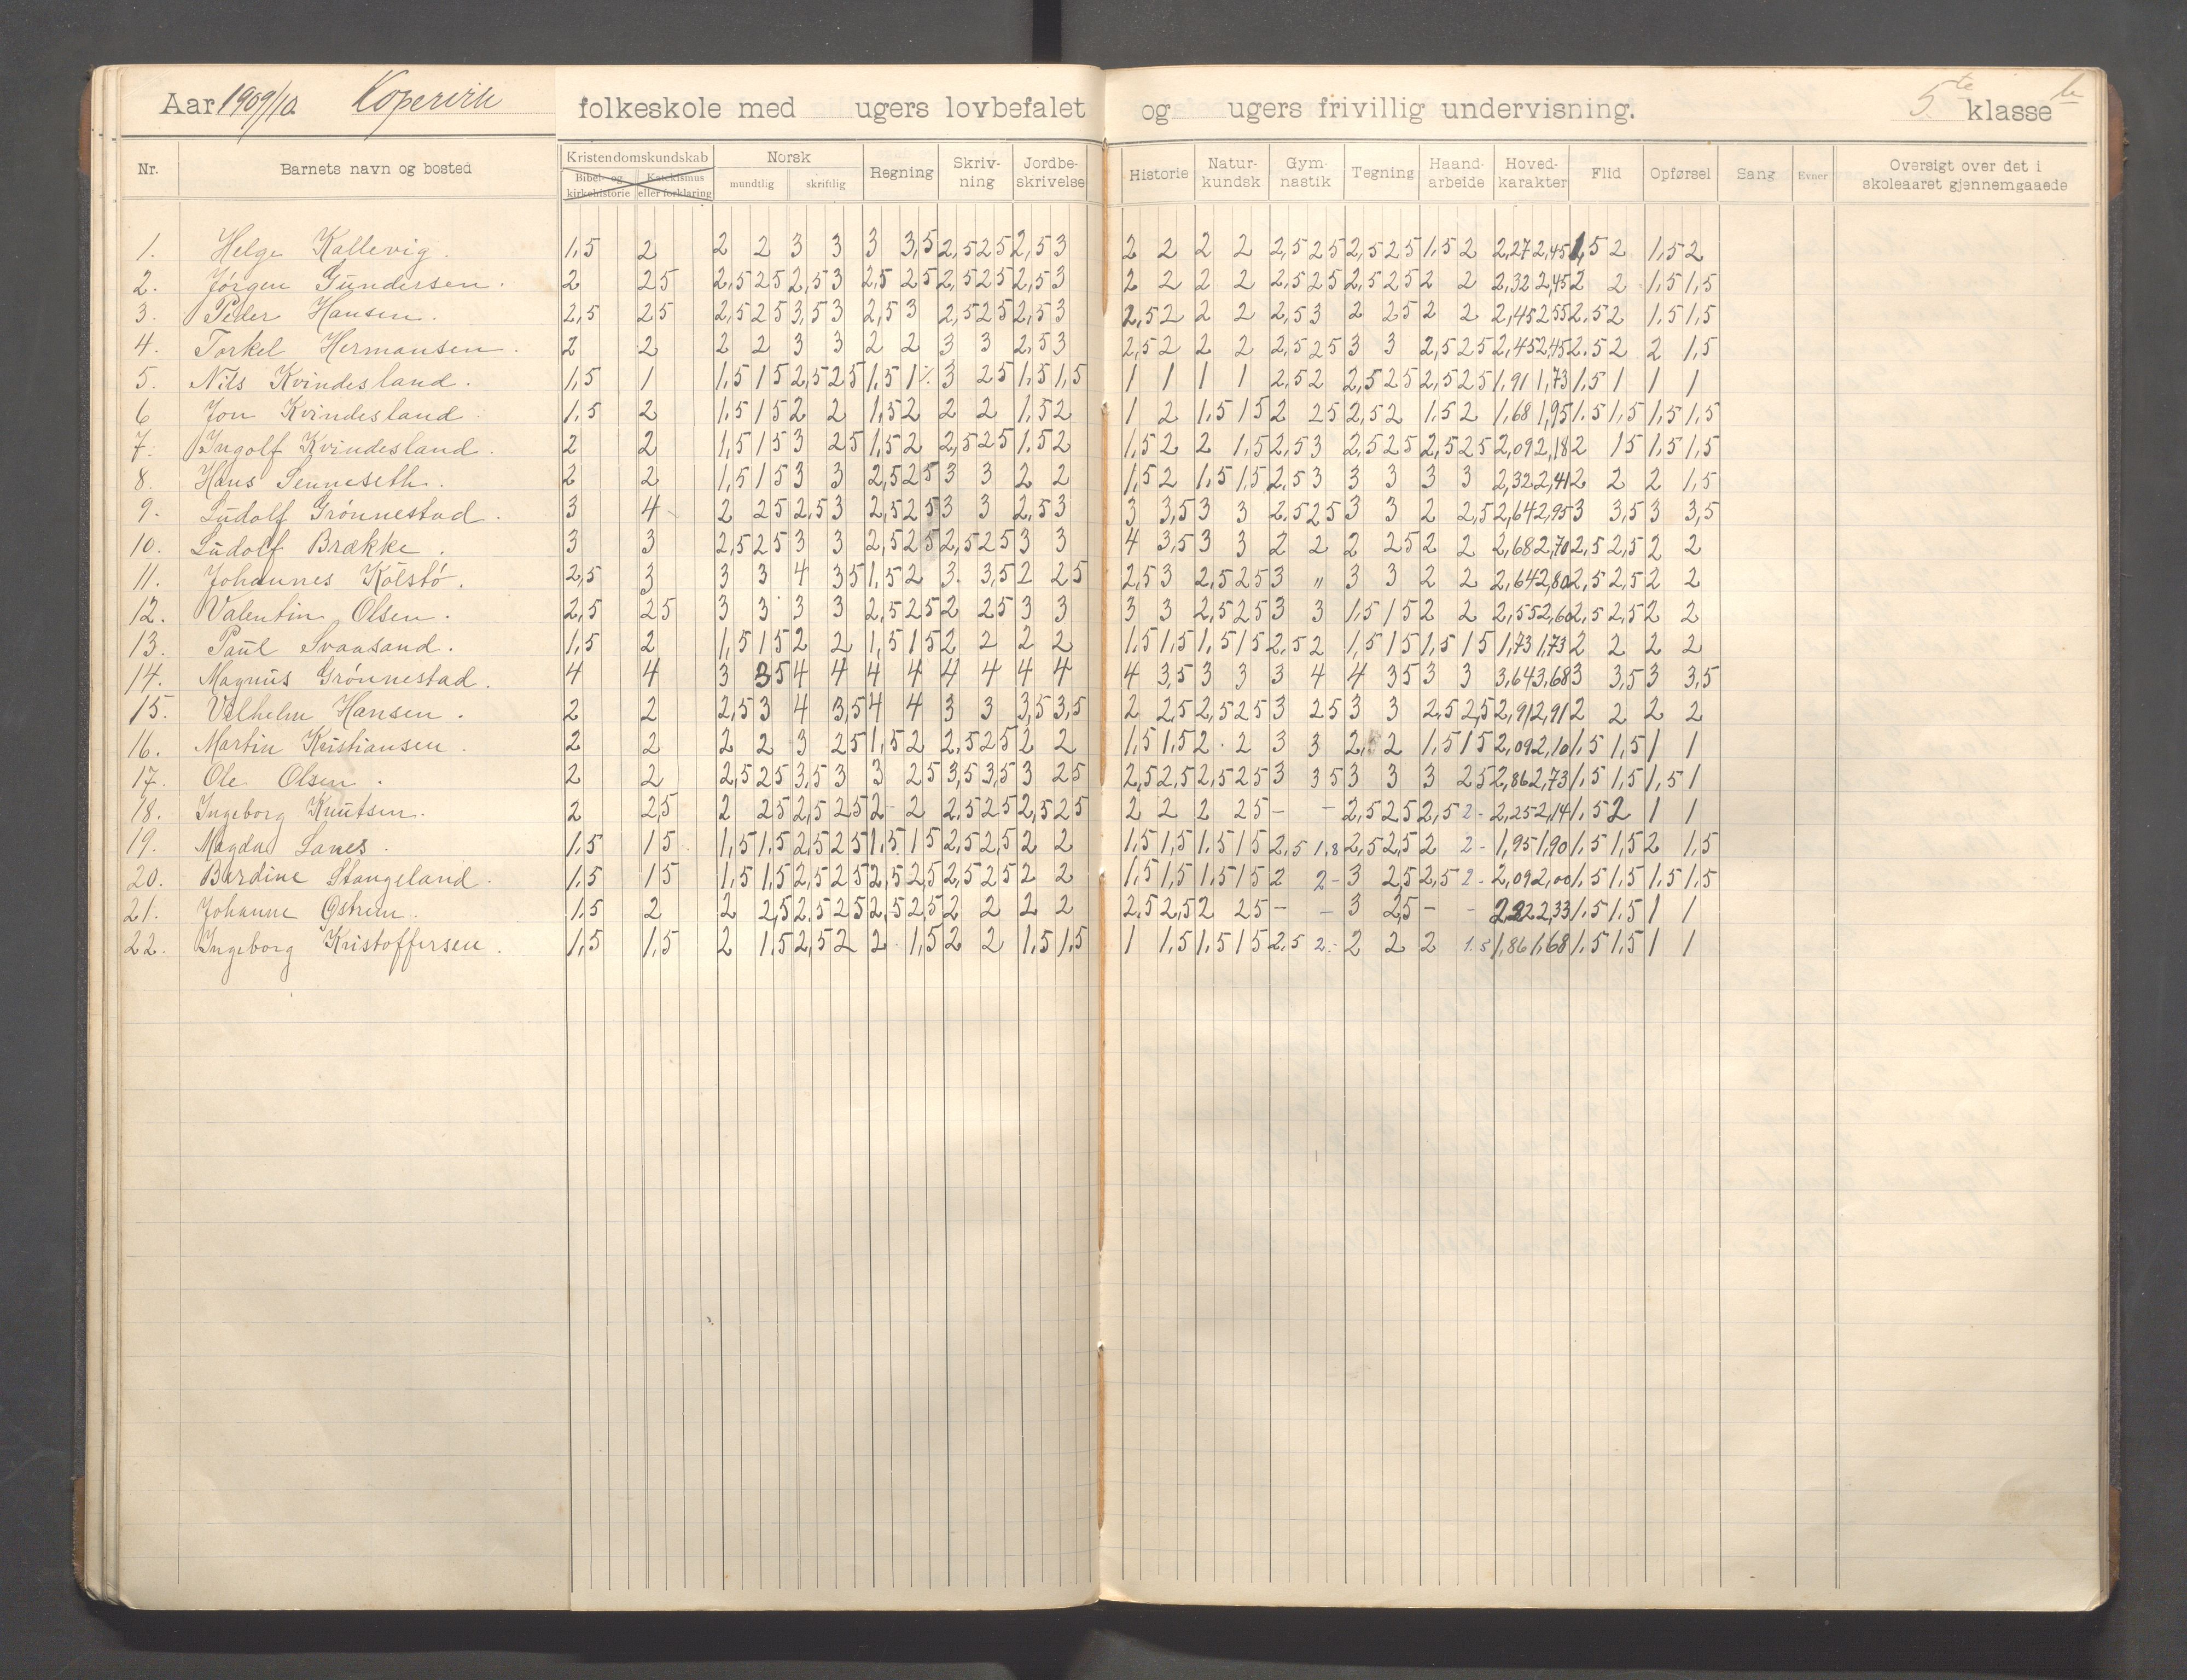 Aar 1909/10. Kopervik folkeskole med ugers lovbefalet og ugers frivillig undervisning. 5te klasse b
Nr. Barnets navn og bosted Kristendomskundskab Bibel- og kirkehistorie Katekismus eller forklaring Norsk mundtlig skriftlig Regning Skriv-ning Jordbe-skrivelse Historie Natur-kundsk Gym-nastik Tegning Haand-arbeide Hoved-karakter Flid Opførsel Sang Evner Oversigt over det i skoleaaret gjennemgaaede
1. Helge Kallevig. 1,5 2 2 2 3 3 3 3,5 2,5 25 2,5 3 2 2 2 2 2,5 25 2,5 25 1,5 2 2,27 2,45 1,5 2 1,5 2
2. Jórgen Gundersen. 2 25 2,5 25 2,5 3 2,5 25 2,5 25 2,5 3 2 2 2 2 2,5 25 2,5 25 2 2 2,32 2,45 2 2 1,5 1,5
3. Peder Hansen. 2,5 25 2,5 25 3,5 3 2,5 3 2,5 25 2,5 3 2,5 2 2 2 2,5 3 2 25 2 2 2,45 2,55 2,5 2 1,5 1,5
4. Torkel Hermansen. 2 2 2 2 3 3 2 2 3 3 2,5 3 2,5 2 2 2 2,5 25 3 3 2,5 25 2,45 2,45 2,5 2 2 1,5
5. Nils Kvindesland. 1,5 1 1,5 15 2,5 25 1,5 1 3 25 1,5 1,5 1 1 1 1 2,5 2 2,5 25 2,5 25 1,91 1,73 1,5 1 1 1
6 Jon Kvindesland. 1,5 2 1,5 15 2 2 1,5 2 2 2 1,5 2 1 2 1,5 15 2 25 2,5 2 1,5 2 1,68 1,95 1,5 1,5 1,5 1,5
7. Ingolf Kvindesland. 2 2 1,5 15 3 25 1,5 2 2,5 25 1,5 2 1,5 2 2 1,5 2,5 3 2,5 25 2,5 25 2,09 2,18 2 15 1,5 1,5
8. Hans Senneseth. 2 2 1,5 15 3 3 2,5 25 3 3 2 2 1,5 2 1,5 1,5 2,5 3 3 3 3 3 2,32 2,41 2 2 2 1,5
9. Ludolf Grónnestad. 3 4 2 25 2,5 3 2,5 25 3 3 2,5 3 3 3,5 3 3 2,5 25 3 3 2 2,5 2,64 2,95 3 3,5 3 3,5
10. Ludolf Brække. 3 3 2,5 25 3 3 2,5 25 2,5 25 3 3 4 3,5 3 3 2 2 2 25 2 2 2,68 2,70 2,5 2,5 2 2
11. Johannes Kolstó. 2,5 3 3 3 4 35 1,5 2 3. 3,5 2 25 2,5 3 2,5 25 3 " 3 3 2 2 2,64 2,80 2,5 2,5 2 2
12. Valentin Olsen. 2,5 25 3 3 3 3 2,5 25 2 25 3 3 3 3 2,5 25 3 3 1,5 15 2 2 2,55 2,60 2,5 2,5 2 2
13. Paul Svaasand. 1,5 2 1,5 15 2 2 1,5 15 2 2 2 2 1,5 1,5 1,5 15 2,5 2 1,5 15 1,5 15 1,73 1,73 2 2 2 2
14. Magnus Grónnestad. 4 4 3 35 4 4 4 4 4 4 4 4 4 3,5 3 3 3 4 4 35 3 3 3,64 3,68 3 3,5 3 3,5
15. Vilhelm Hansen. 2 2 2,5 3 4 3,5 4 4 3 3 3,5 3,5 2 2,5 2,5 25 3 25 3 3 2,5 2,5 2,91 2,91 2 2 2 2
16. Martin Kristiansen. 2 2 2 2 3 25 1,5 2 2,5 25 2 2 1,5 1,5 2 2 3 3 2, 2 1,5 15 2,09 2,10 1,5 1,5 1 1
17. Ole Olsen. 2 2 2,5 25 3,5 3 3 25 3,5 3,5 3 25 2,5 2,5 2,5 25 3 35 3 3 3 25 2,86 2,73 1,5 1,5 1,5 1
18. Ingeborg Knutsen. 2 2,5 2 25 2,5 25 2 2 2,5 25 2,5 25 2 2 2 25 - - 2,5 25 2,5 2- 2,25 2,14 1,5 2 1 1
19. Magda Lanes. 1,5 15 1,5 1,5 2,5 25 1,5 15 2,5 2,5 2 2 1,5 1,5 1,5 15 2,5 1,8 2,5 2,5 2 2- 1,95 1,90 1,5 1,5 2 1,5
20. Berdine Stangeland. 1,5 15 1,5 1,5 2,5 25 2,5 25 2,5 25 2 2 1,5 1,5 1,5 15 2 2- 3 2,5 2,5 2- 2,09 2,00 1,5 1,5 1,5 1,5
21. Johanne 1,5 2 2 2,5 2,5 25 2,5 2,5 2 2 2 2 2,5 2,5 2 25 - - 3 2,5 - - 2,22 2,33 1,5 1,5 1 1
22. Ingeborg Kristoffersen. 1,5 1,5 2 1,5 2,5 2 2 1,5 2 2 1,5 1,5 1 1,5 1,5 15 2,5 2- 2 2 2 1.5 1,86 1,68 1,5 1,5 1 1